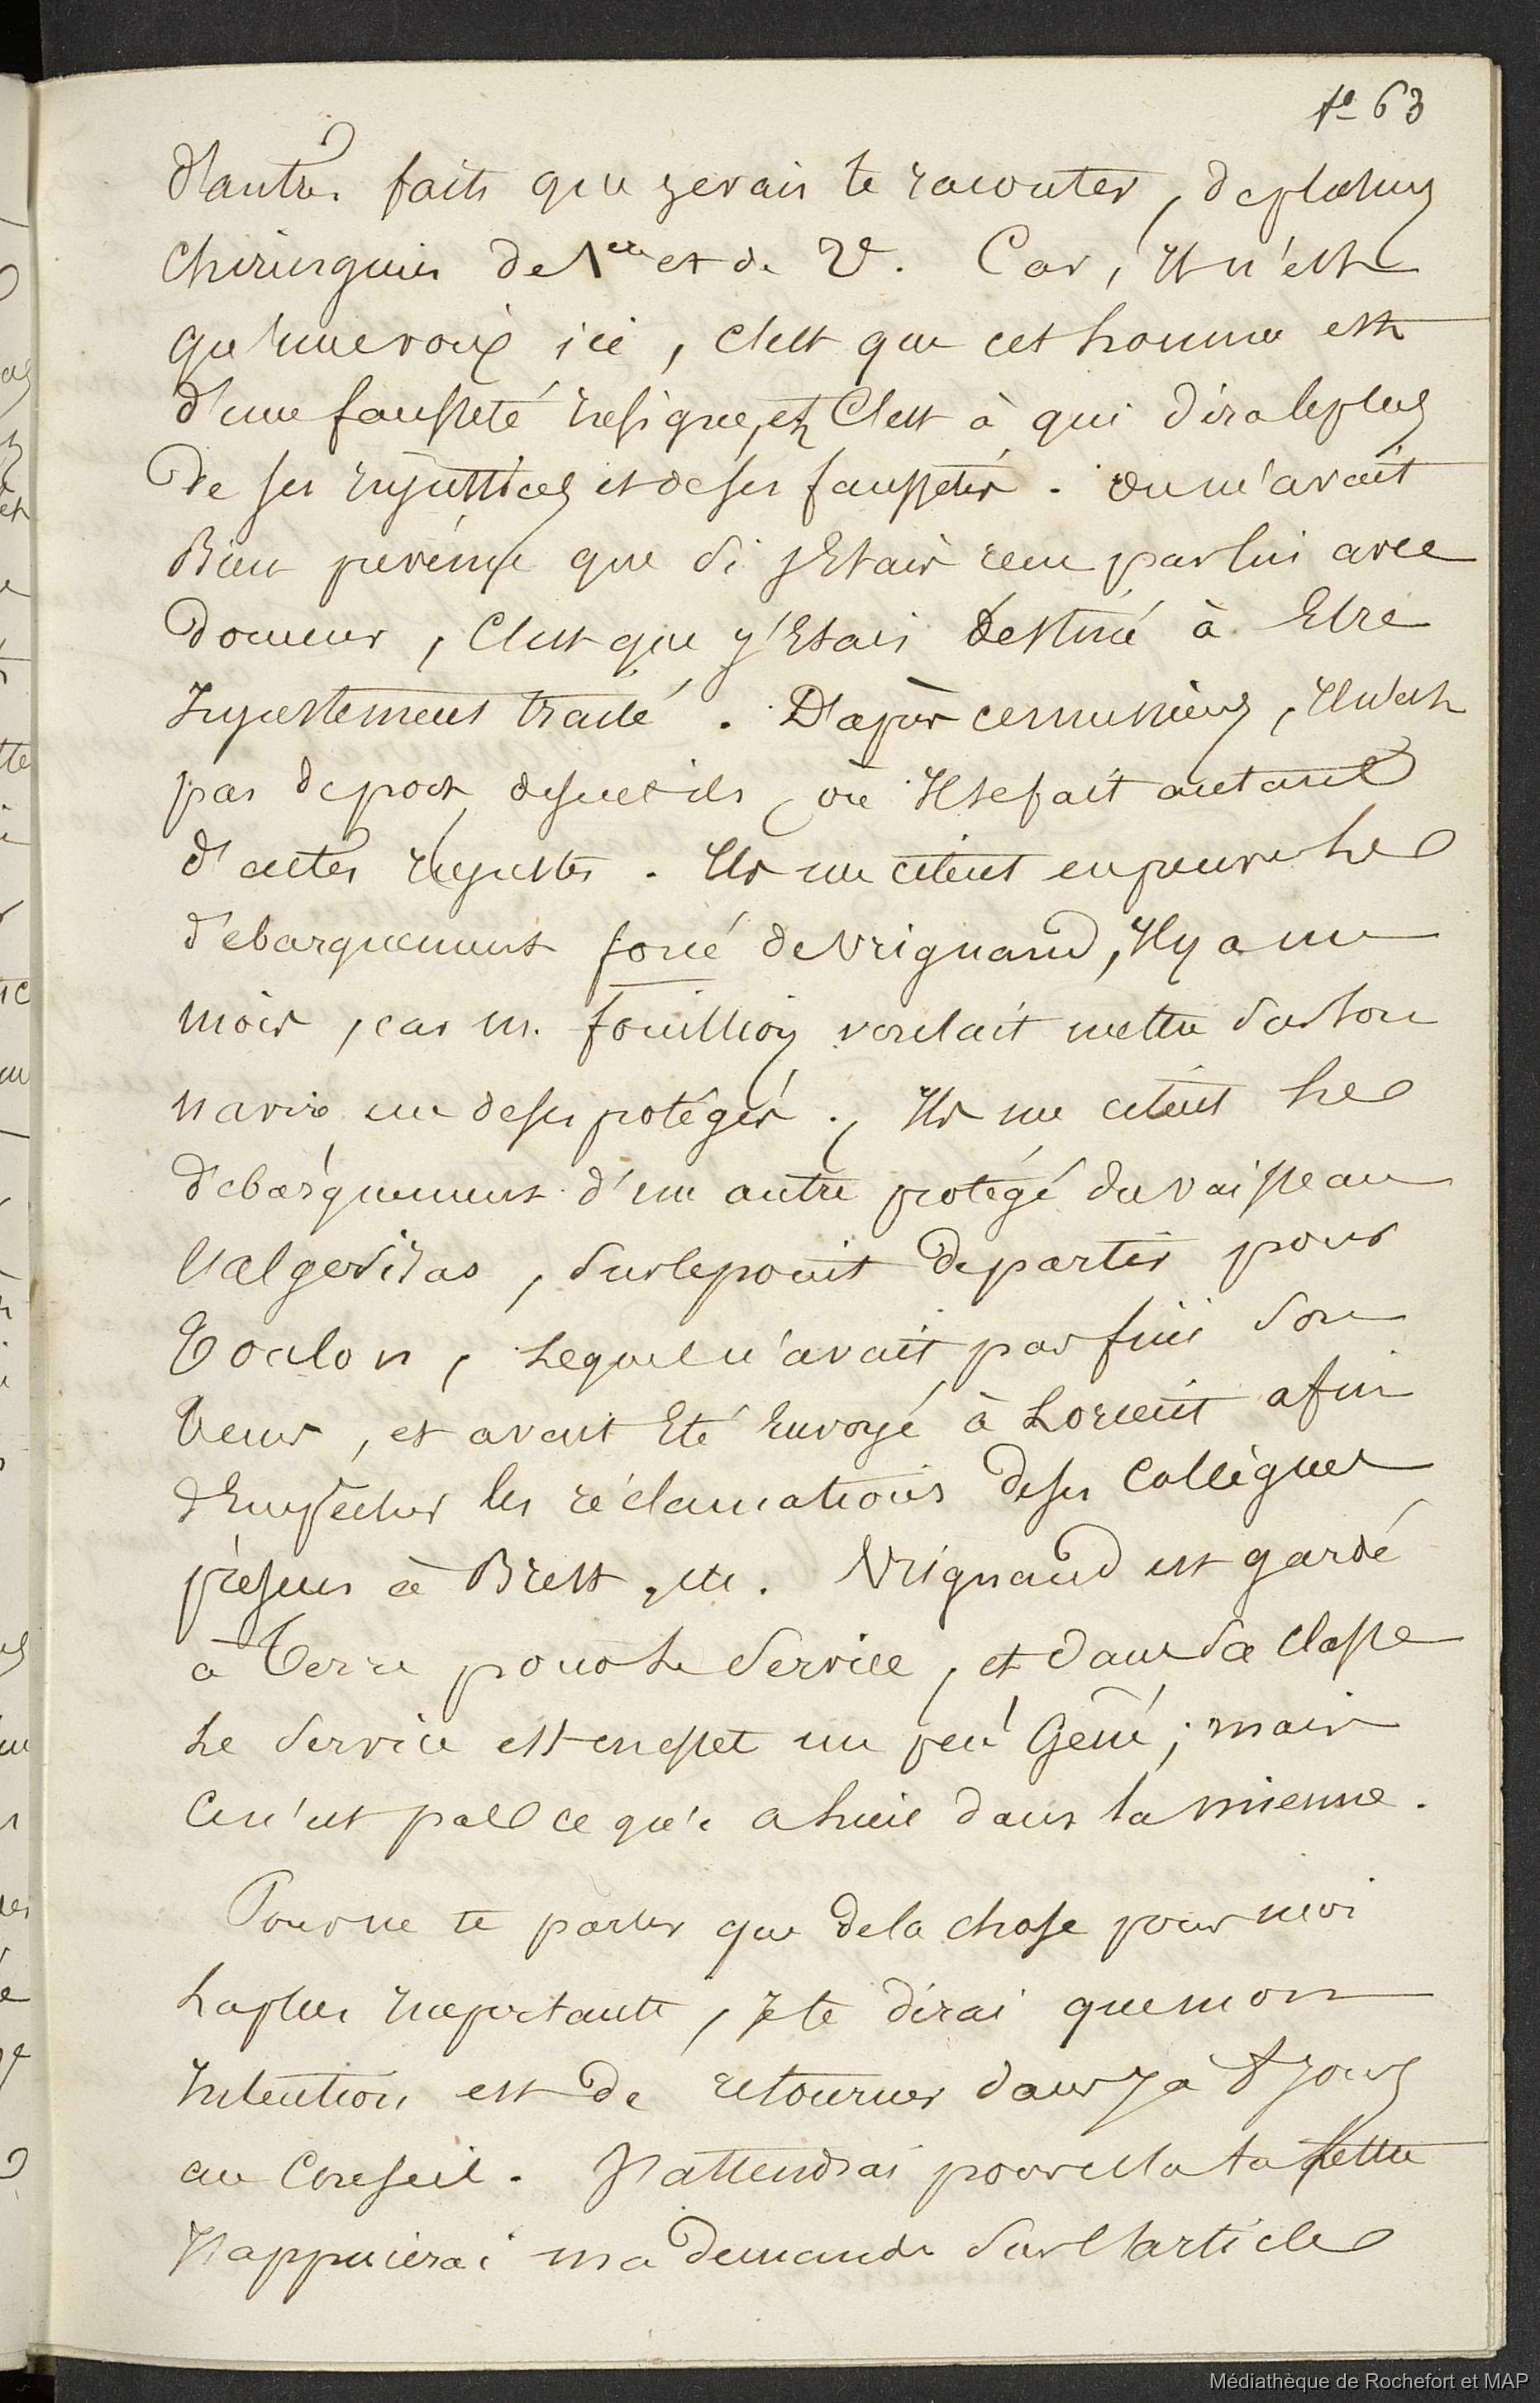 fo 63
d'autres faits que je vais te raconter, de plusieurs
chirurgiens de 1ere et de 2e. Car, Il n'est
qu'une voix ici, c'est que cet homme est
d'une fausseté insigne, et c'est à qui dira le plus
de ses injustices et de ses faussetés. On m'avait
Bien prévenu que si j'Etais reçu par lui avec
douceur, c'est que j'Etais destiné à Etre
Injustement traité. D'après ces messieurs, Il n'est
pas de port, disent-ils, où Il se fait autant
d'actes injustes. Ils me citent en preuve Le
débarquement forcé de Vrignaud, Il y a un
mois, car M. fouillioy voulait mettre sur son
navire un de ses protégés. Ils me citent Le
débarquement d'un autre protégé du vaisseau
l'algésiras, sur le point de partir pour
Toulon, Lequel n'avait pas fini son
tems, et avait Eté Envoyé à Lorient afin
d'Empêcher les réclamations de ses Collègues
présens à Brest, etc. Vrignaud est gardé
à terre pour Le Service, et dans sa classe
Le Service est en effet un peu Gêné; mais
ce n'est pas ce qu'il a lieu dans la mienne.
Pour ne te parler que de la chose pour moi
La plus importante, Je te dirai que mon
Intention est de retourner dans 7 à 8 jours
au Conseil. J'attendrai pour cela ta lettre
J'appuierai ma demande sur l'article
Médiathèque de Rochefort et MAP